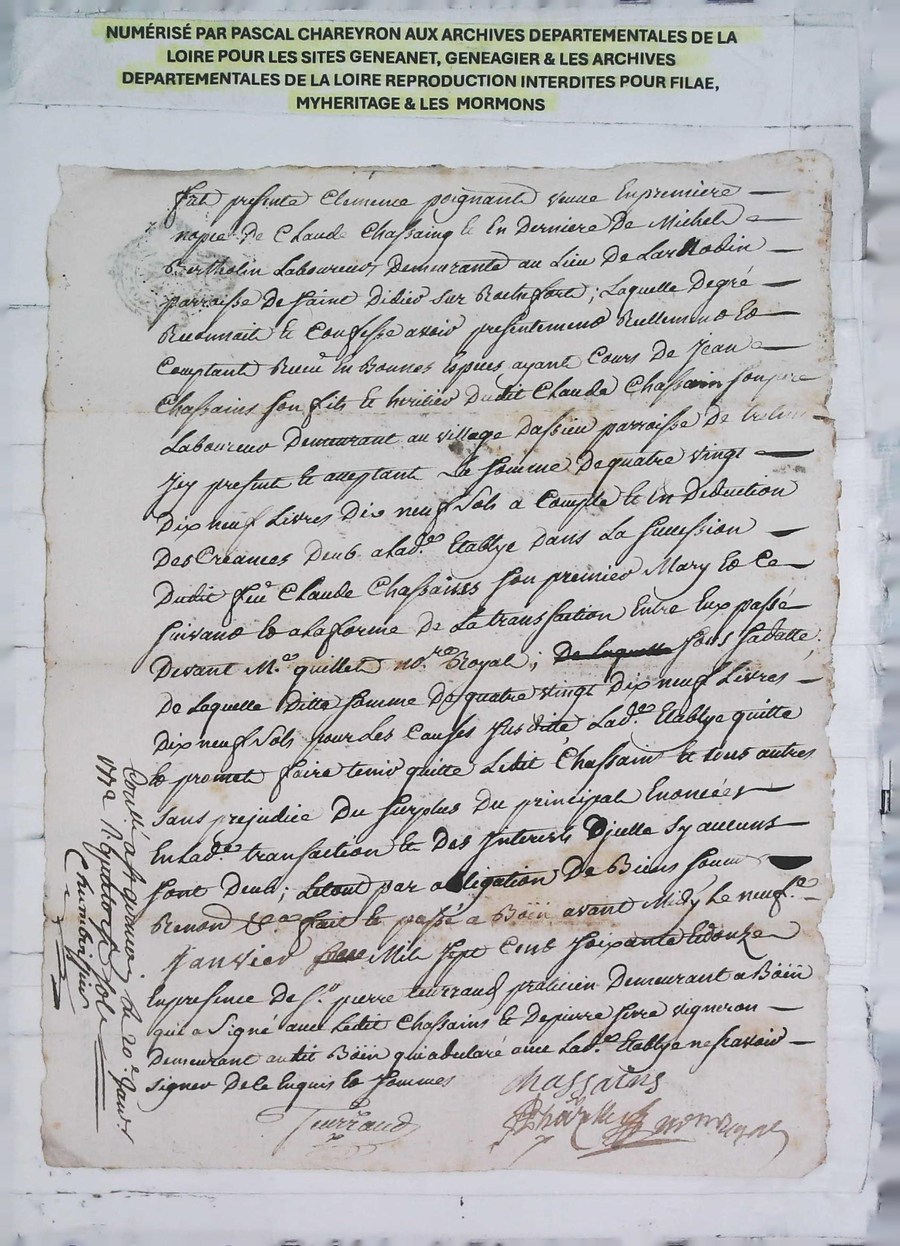 NUMÉRISÉ PAR PASCAL CHAREYRON AUX ARCHIVES DEPARTEMENTALES DE LA
LOIRE POUR LES SITES GENEANET, GENEAGIER & LES ARCHIVES
DEPARTEMENTALES DE LA LOIRE REPRODUCTION INTERDITES POUR FILAE,
MYHERITAGE & LES MORMONS
fut presente Clemence poignant veuve Enpremiere
nopce De Claude Chassaing Et En Derniere De Michel
Bertholin Laboureur Demeurante au Lieu De
parroisse De saint Didier sur Rochefort; Laquelle Degré
Reconnait Et Confesse avoir presentement Réellement Et
Comptant Recu En Bonnes Espices ayant Cours De Jean
Chassains son fils Et heritier Dudit Claude Chassain son pere
Laboureur Demeurant au village parroisse De
Icy present Et aceptant La somme De quatre vingt
Dix neuf Livres Dix neuf sols a Compte Et En Deduction
Des Créances Deub a Lad.e Etablye Dans La sucession
Dudit feu Claude Chassaings son premier Mary Et Ce
suivant Et a La forme De La transaction Entre Eux passé
Devant M.e quillet no.re Royal; De Laquelle sous sa Datte;
De Laquelle Ditte somme De quatre vingt Dix neuf Livres
Dix neuf sols pour Les Causes susditte Lad.e Etablye quitte
Et promet faire tenir quitte Ledit Chassain Et tous autres
sans prejudice Du surplus Du principal Enoncéer
En Lad.e transaction Et Des Interets D'icelle sy aucuns
sont Deub; Letout par obligation De Biens soum
Renon &.a fait Et passé a Böën avant Midy Le neuf.e
Janvier Mil sept Cent soixante Et douze
En presence De s.r pierre turraud praticien Demeurant a Böën
qui a signé avec Ledit Chassains Et De pierre serre vigneron
Demeurant audit Böën qui a declaré avec Lad.e Etablye ne scavoir
signer De Ce Enquis Et sommes
Chassaings
Turraud
Controllé a le 20.e Janvier
1772 R quatorze sols